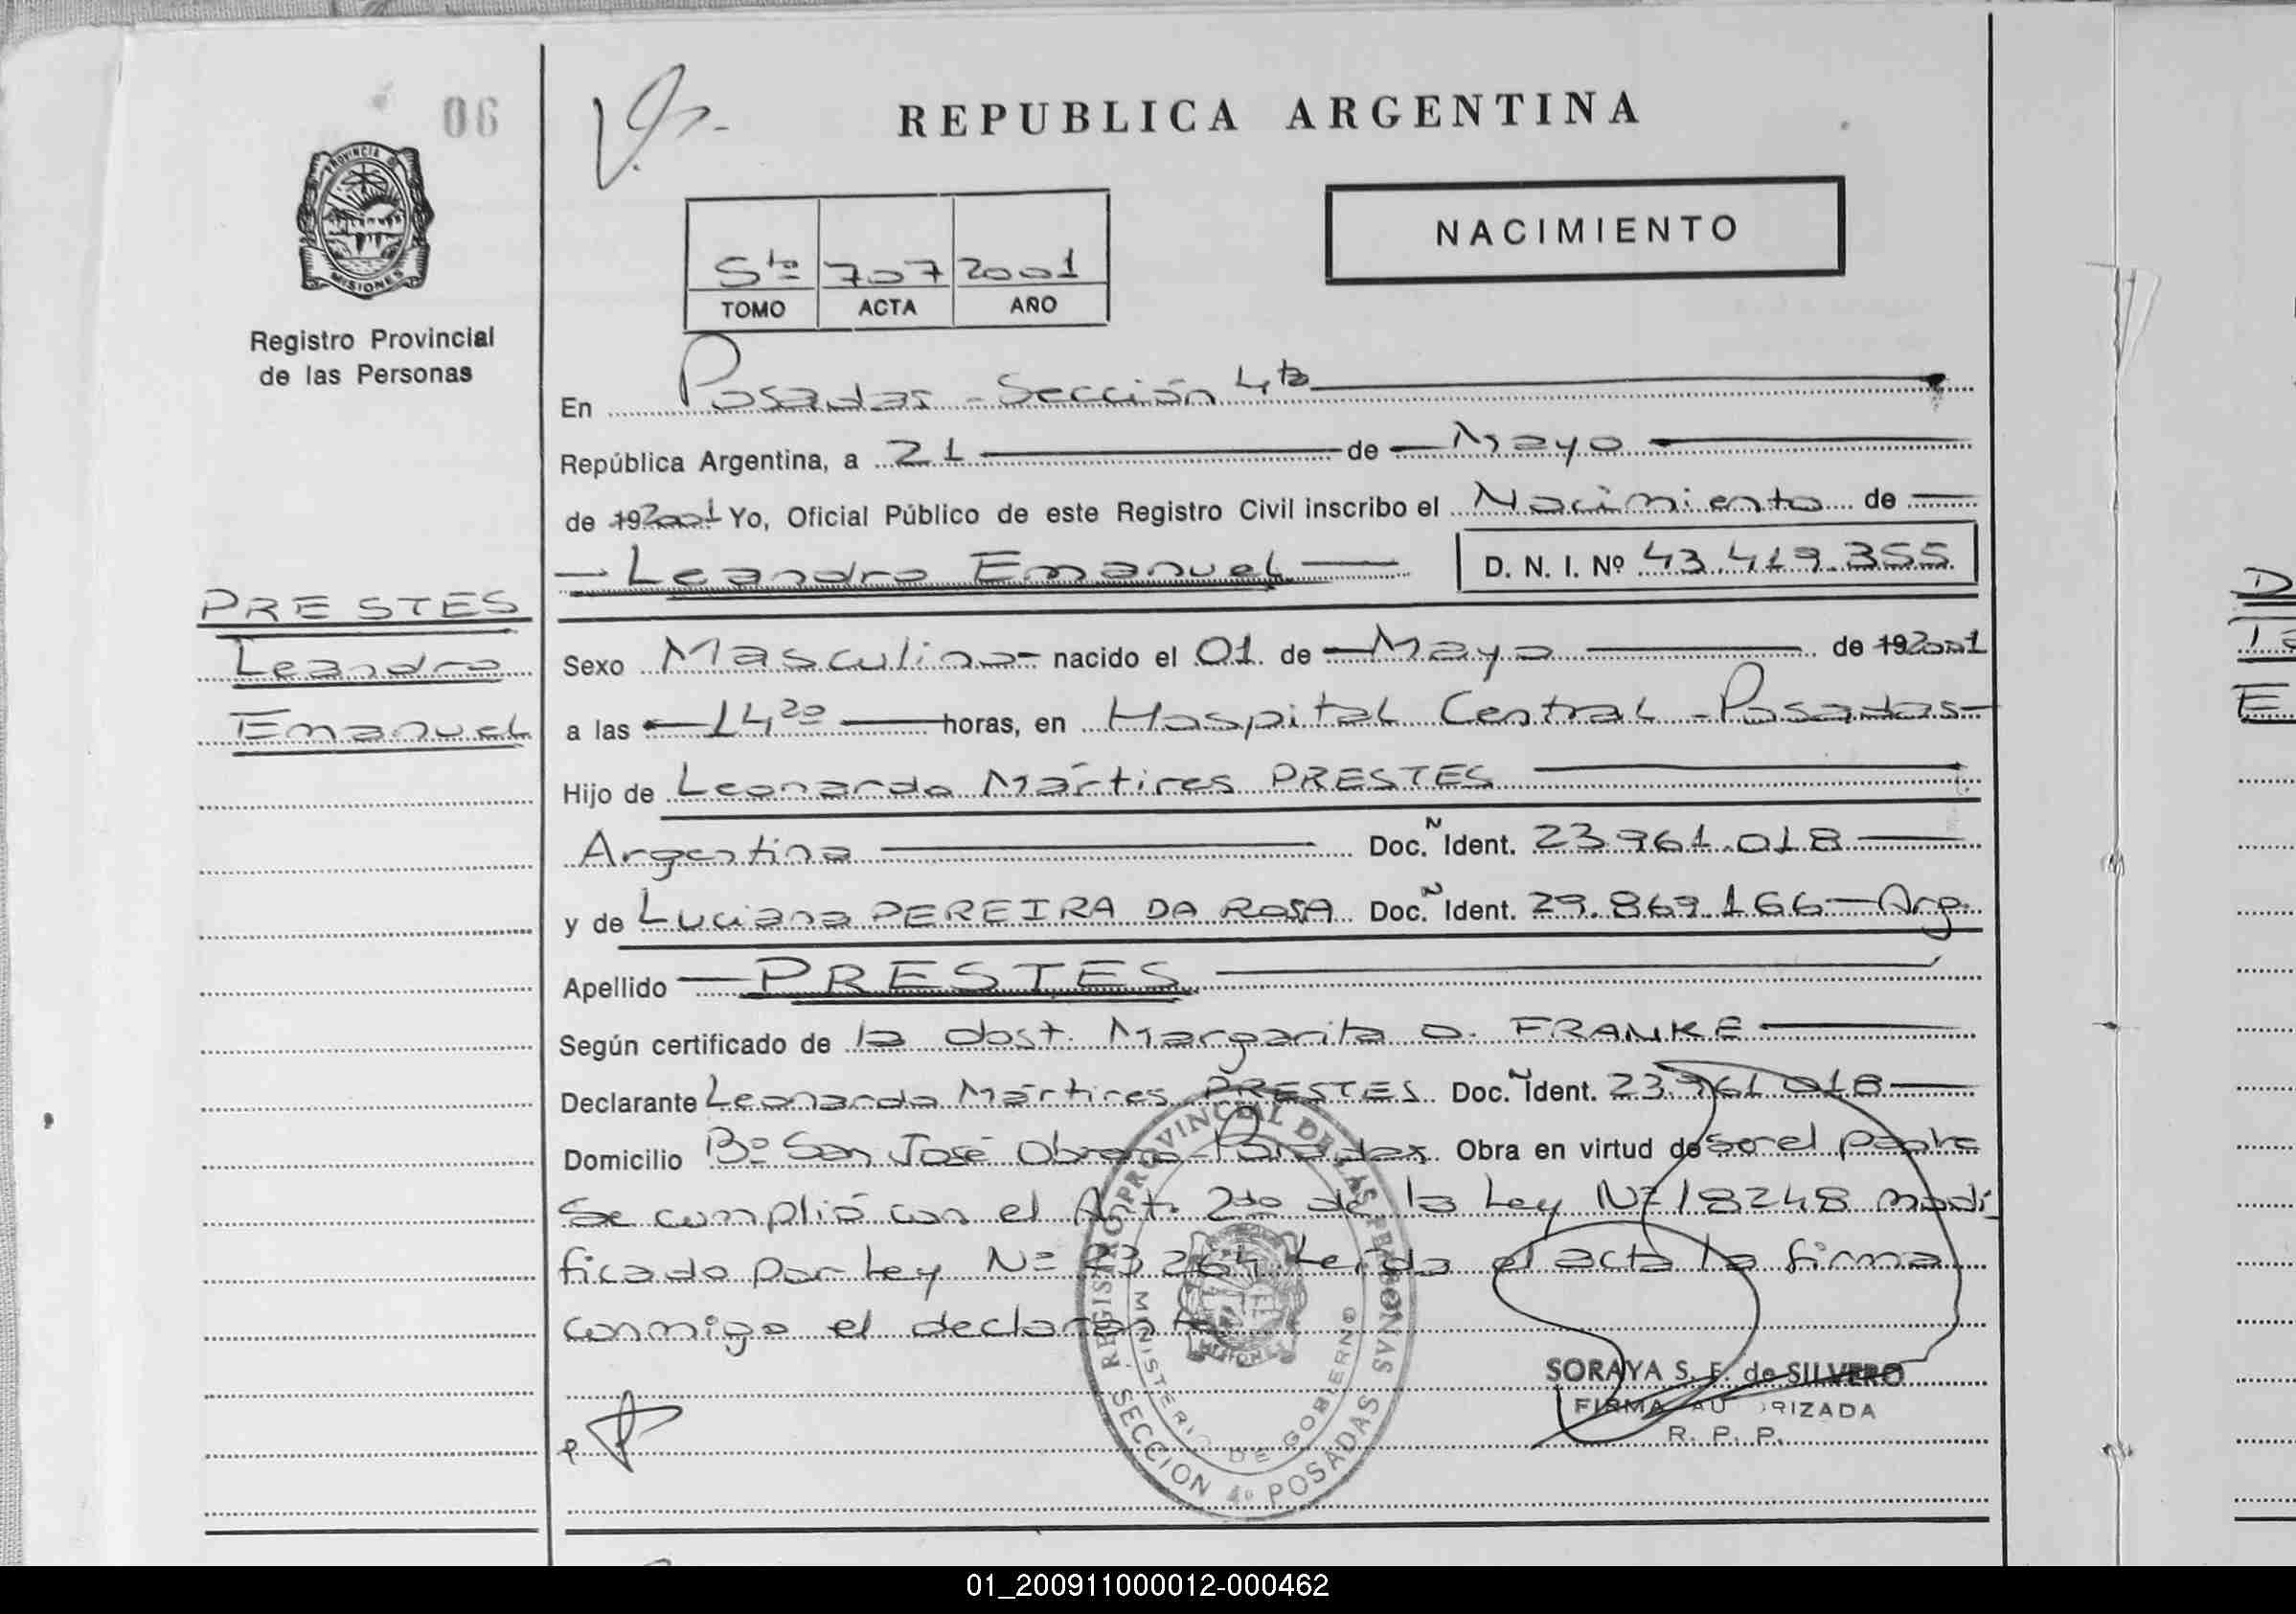 06
REPUBLICA ARGENTINA
PROVINCIA DE
MISIONES
NACIMIENTO
5to 707 2001
TOMO ACTA AÑO
Registro Provincial
de las Personas
En Posadas - Sección 4ta
República Argentina, a 21 de Mayo
de 192001 Yo, Oficial Público de este Registro Civil inscribo el Nacimiento de
Leandro Emanuel D. N. I. Nº 43.419.355
PRESTES
Leandro
Emanuel
Sexo Masculino - nacido el 01 de Mayo de 192001
a las 14,20 horas, en Hospital Central - Posadas -
Hijo de Leonardo Mártires PRESTES
Argentino Doc. N Ident. 23.961.018
y de Luciana PEREIRA DA ROSA Doc. N Ident. 29.869.166 - Arg.
Apellido PRESTES
Según certificado de la obst. Margarita O. FRANKE
Declarante Leonardo Mártires PRESTES Doc. N Ident. 23.961.018
Domicilio Bº San José Obrero - Posadas Obra en virtud de ser el padre
Se cumplió con el Art. 2do de la Ley Nº 18248 modi
ficado por Ley Nº 23.264. Leída el acta la firma
conmigo el declarante
REGISTRO PROVINCIAL DE LAS PERSONAS
MINISTERIO DE GOBIERNO
SECCION 4º POSADAS
SORAYA S. F. de SILVERO
FIRMA AU RIZADA
R. P. P.
01_200911000012-000462